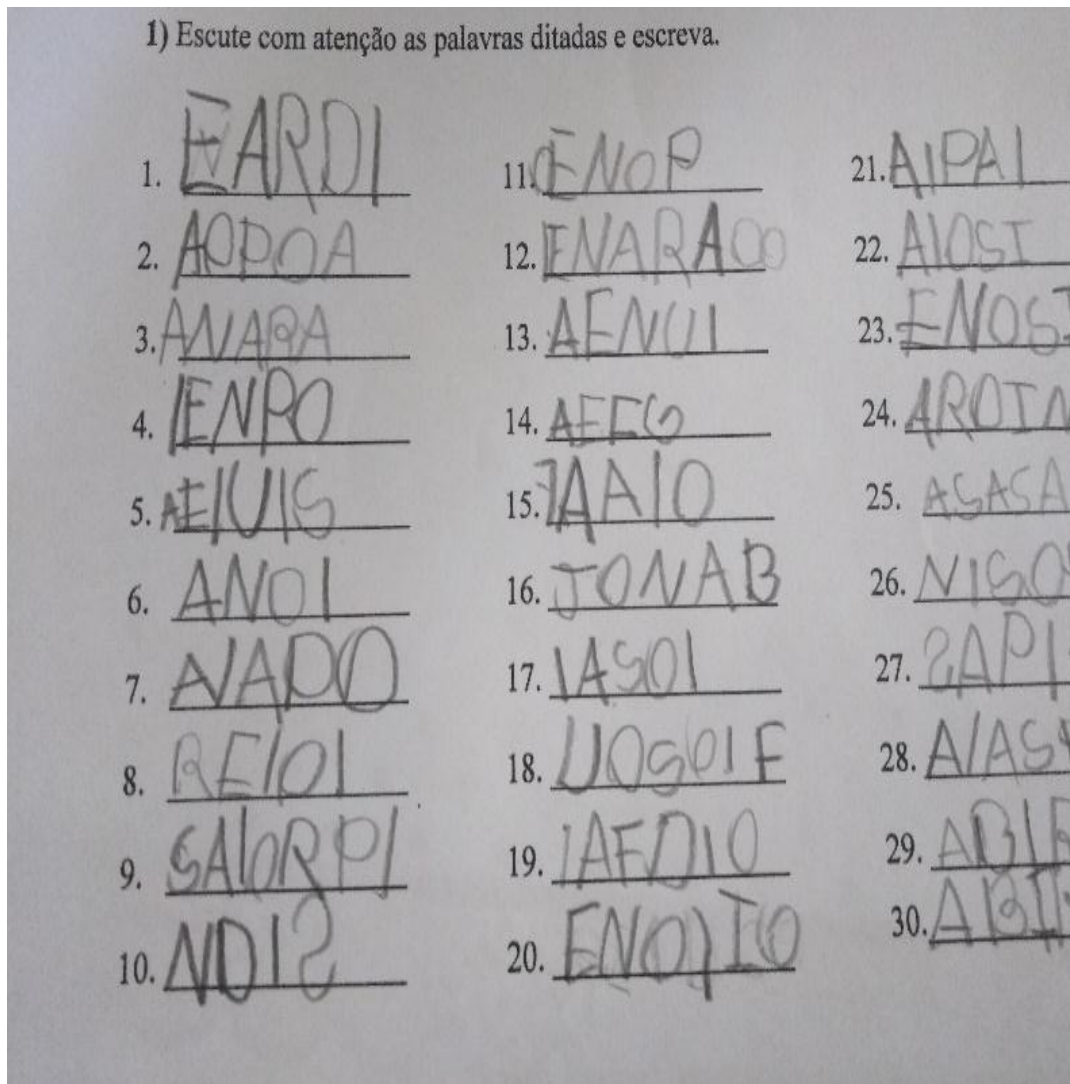 1) Escute com atenção as palavras ditadas e escreva.
1. EARDI
2. AOPOA
3. ANARA
4. IENPO
5. AEIUIS
6. ANOI
7. NADO
8. REIOI
9. SAIORPI
10. NDIS
11. ENOP
12. ENARAOO
13. AENUI
14. AEEG
15. JAAIO
16. JONAB
17. IASOI
18. UOSOIF
19. IAEDIO
20. ENOJIO
21. AIPAI
22. AIOSI
23. ENOSI
24.
25. ASASA
26.
27.
28.
29.
30.